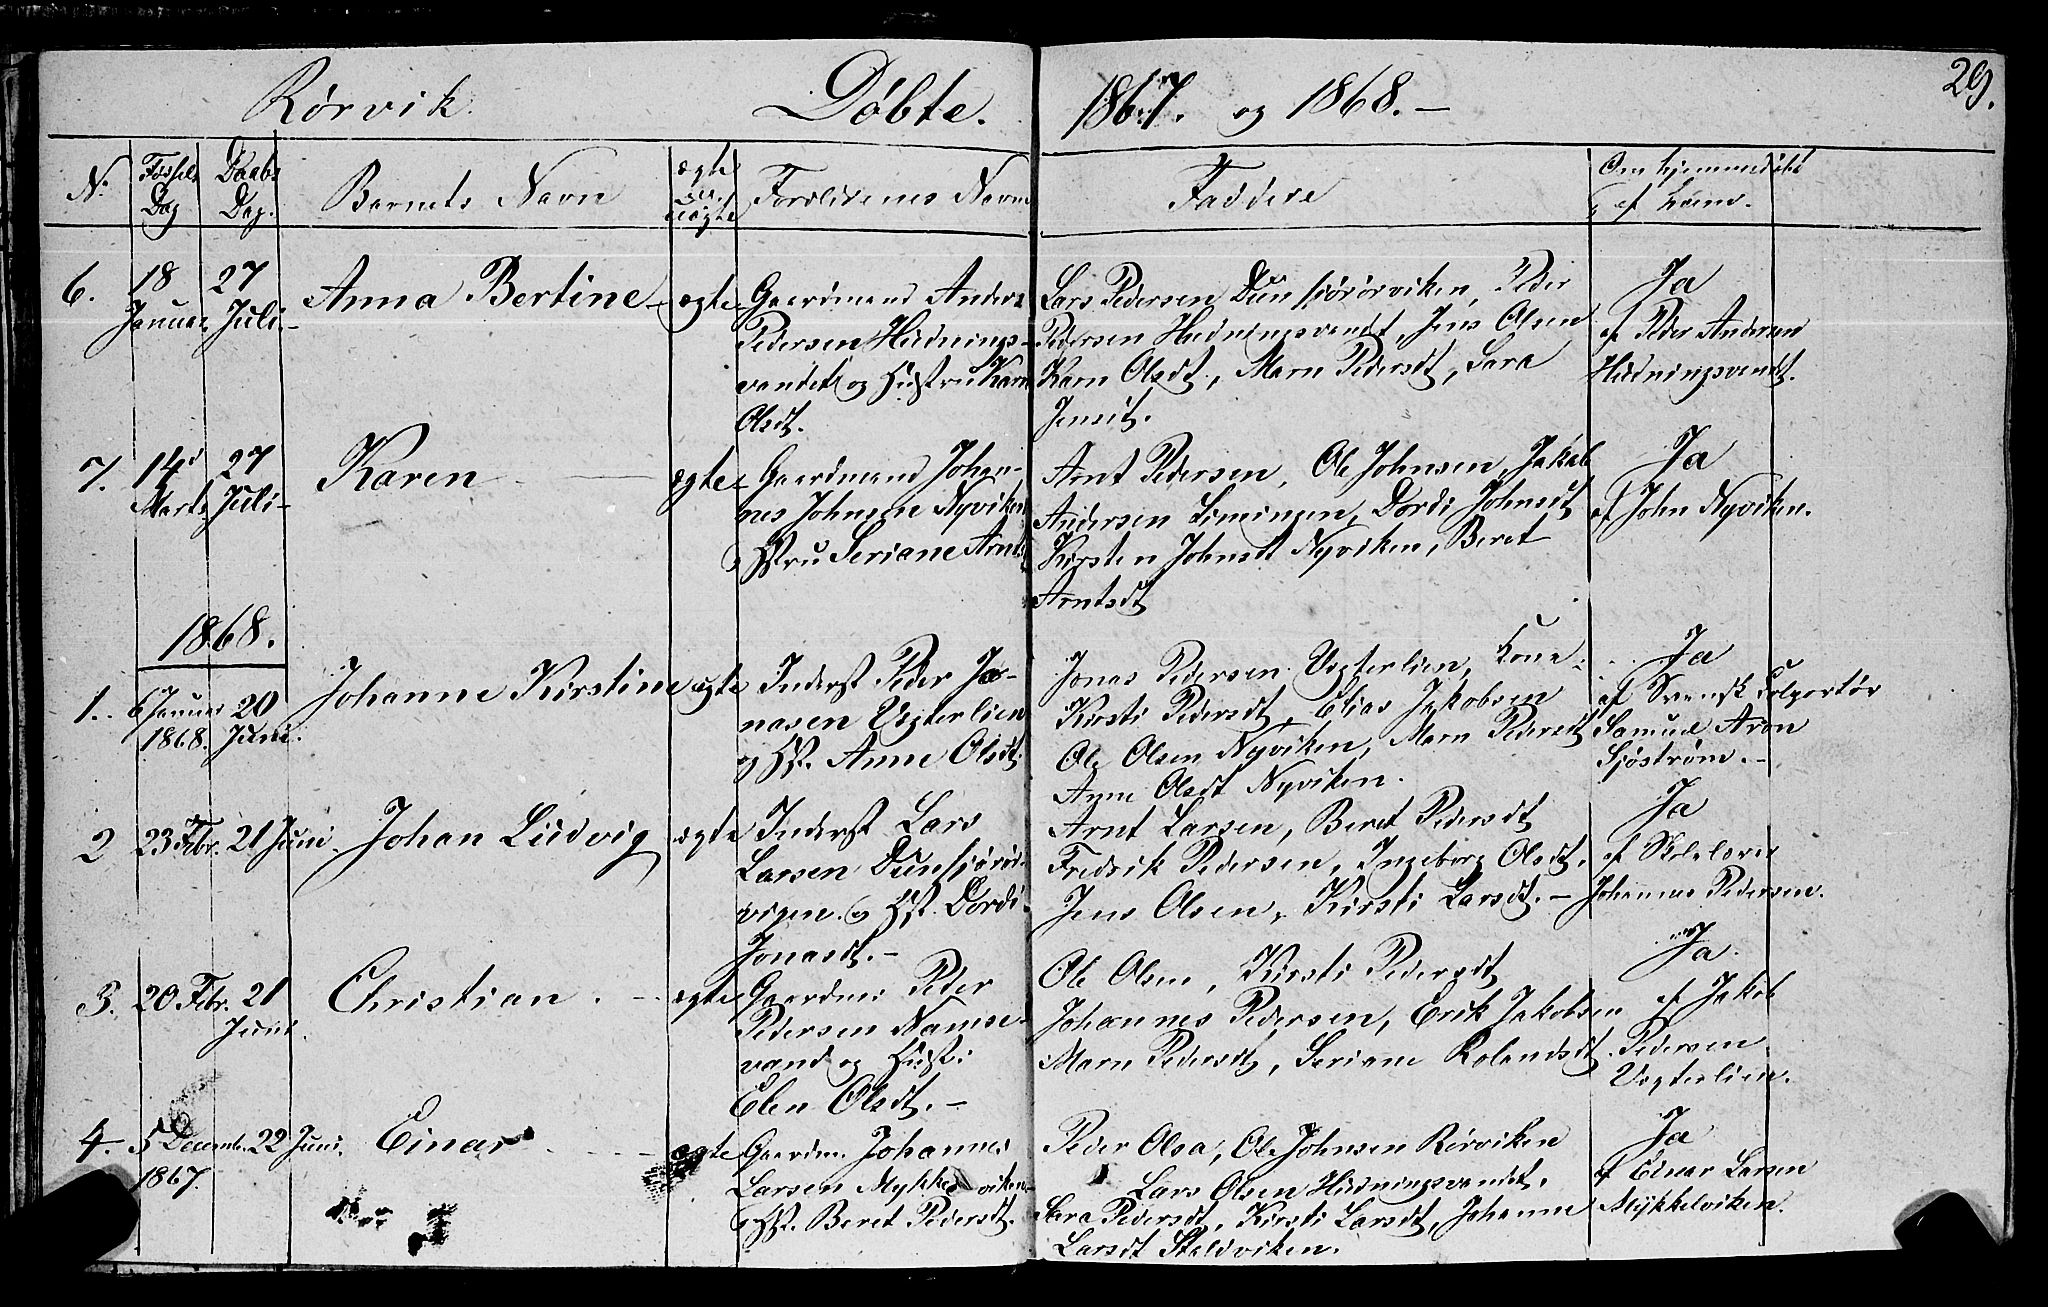 29.
Rørvik. Døbte. 1867. og 1868. –
N. Fødsels Dag Daabs Dag. Barnets Navn ægte uægte Forældrenes Navne Faddere Om hjemmedøbt af hvem.
6. 18 Januar. 27 Juli – Anna Bertine – ægte
Gaardmand Anders
Pedersen Hudnings-
vandet og Hustru Karn
Olsdt.
Lars Pedersen Dunsjørørviken, Peder
Pedersen Hudningsvandt, Jens Olsen
Karn Olsdt, Marn Pedersdt, Sara
Jensdt.
Ja
af Peder Andersen
Hudningsvandt.
7. 14d Marts 27 Juli – Karen – ægte
Gaardmand Johan-
nes Johnsen Nyviken
Hstru Seriane Arnts
Arnt Pedersen, Ole Johnsen, Jakob
Andersen Limingen, Dordi Johnsdt
Kirsten Johnsdt Nyviken, Beret
Arntsdt
Ja
af John Nyviken.
1868.
1. 6 Januar 1868. 20 Juni. Johanne Kirstine ægte
Inderst Peder Jo-
nasen Vegterlien
og Hst. Anne Olsdt.
Jonas Pedersen Vegterlien, Kone
Kirsti Pedersdt, Elias Jakobsen
Ole Olsen Nyviken, Marn Pedersdt
Anne Olsdt Nyviken.
Ja
af Svensk Colportør
Samuel Aron
Sjøstrøm. –
2 23 Febr. 21 Juni. Johan Ludvig ægte
Inderst Lars
Larsen Dunsjørør-
vigen. og Hst. Dordi
Jonasdt. –
Arnt Larsen, Beret Pedersdt
Fredrik Pedersen, Ingeborg Olsdt.
Jens Olsen, Kirsti Larsdt. –
Ja
af Skolelærer
Johannes Pedersen.
3. 20 Febr. 21 Juni. Christian. – ægte
Gaardm: Peder
Pedersen Namse-
vand og Hust:
Elen Olsdt. –
Ole Olsen, Kirsti Pedersdt
Johannes Pedersen, Erik Jakobsen
Marn Pedersdt, Seriane Rolandsdt.
Ja.
af Jakob
Pedersen
Vegterlien.
4. 5 Decembr. 1867. 22 Juni. Einar ægte
Gaardm. Johannes
Larsen Mykkelviken
og Hst. Beret Pedersdt.
Peder Olsa, Ole Johnsen Rørviken
Lars Olsen Hudningsvandet.
Sara Pedersdt, Kirsti Larsdt, Johanne
Larsdt Staldviken.
Ja
af Einar Larsen
Mykkelviken.